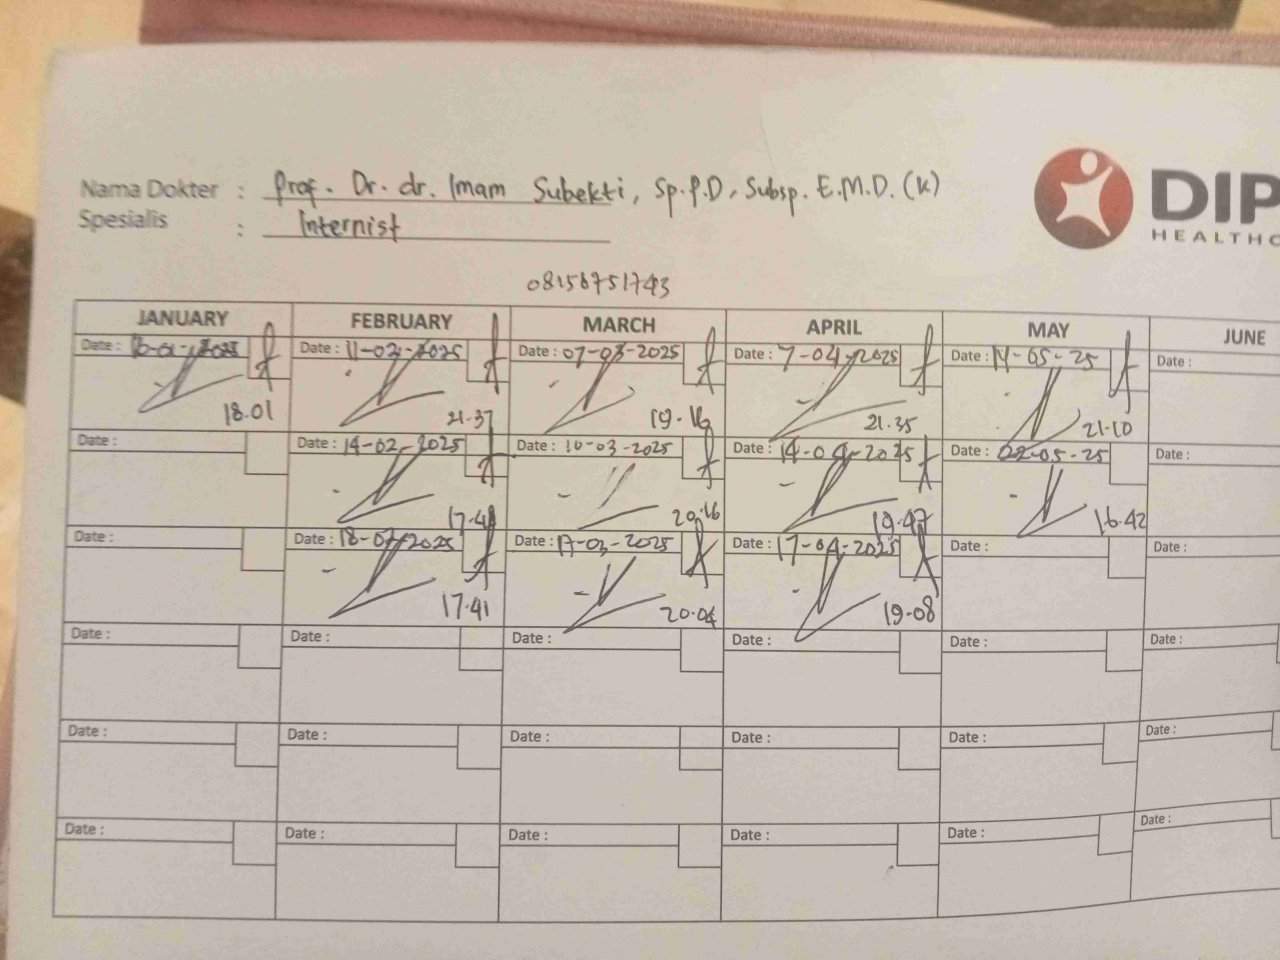 Nama Dokter : Prof. Dr. dr. Imam Subekti, Sp.P.D, Subsp. E.M.D. (K)
Spesialis : Internist
DIP
HEALTHC
08156751743
JANUARY FEBRUARY MARCH APRIL MAY JUNE
Date : Date : 11-02-2025 Date : 07-03-2025 Date : 7-04-2025 Date : 14-05-25 Date :
18.01 21.37 19.16 21.35 21.10
Date : Date : 14-02-2025 Date : 10-03-2025 Date : 14-04-2025 Date : 02-05-25 Date :
20.16 19.47 16.42
Date : Date : 18-02-2025 Date : 17-03-2025 Date : 17-04-2025 Date : Date :
17.41 20.04 19.08
Date : Date : Date : Date : Date : Date :
Date : Date : Date : Date : Date : Date :
Date : Date : Date : Date : Date : Date :